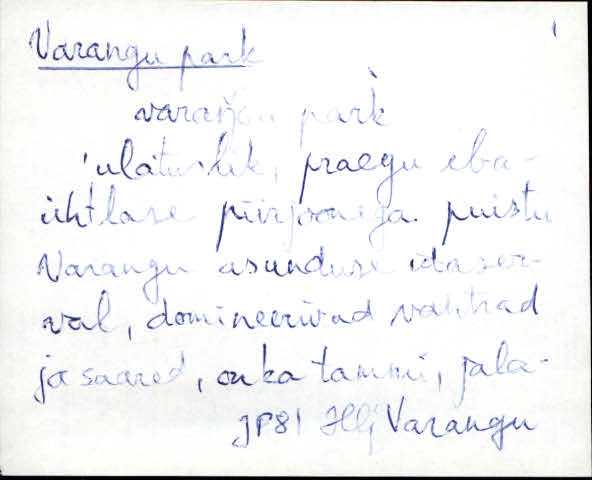 Varangu park 1
varaŋgu park
'ulatuslik, praegu eba-
ühtlase piirjoonega puistu
Varangu asunduse idaser-
val, domineerivad vahtrad
ja saared, on ka tammi, jala-
JP81 Hlj Varangu